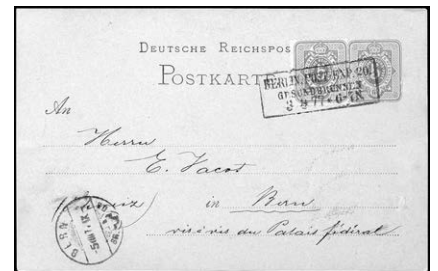 DEUTSCHE REICHSPOS
POSTKARTE
BERLIN, POST-EXP. 20.
GESUNDBRUNNEN
3 9 77 * 6-7N
An
Herrn
E. Jacot
in Bern
vis à vis du Palais fédéral
BERN